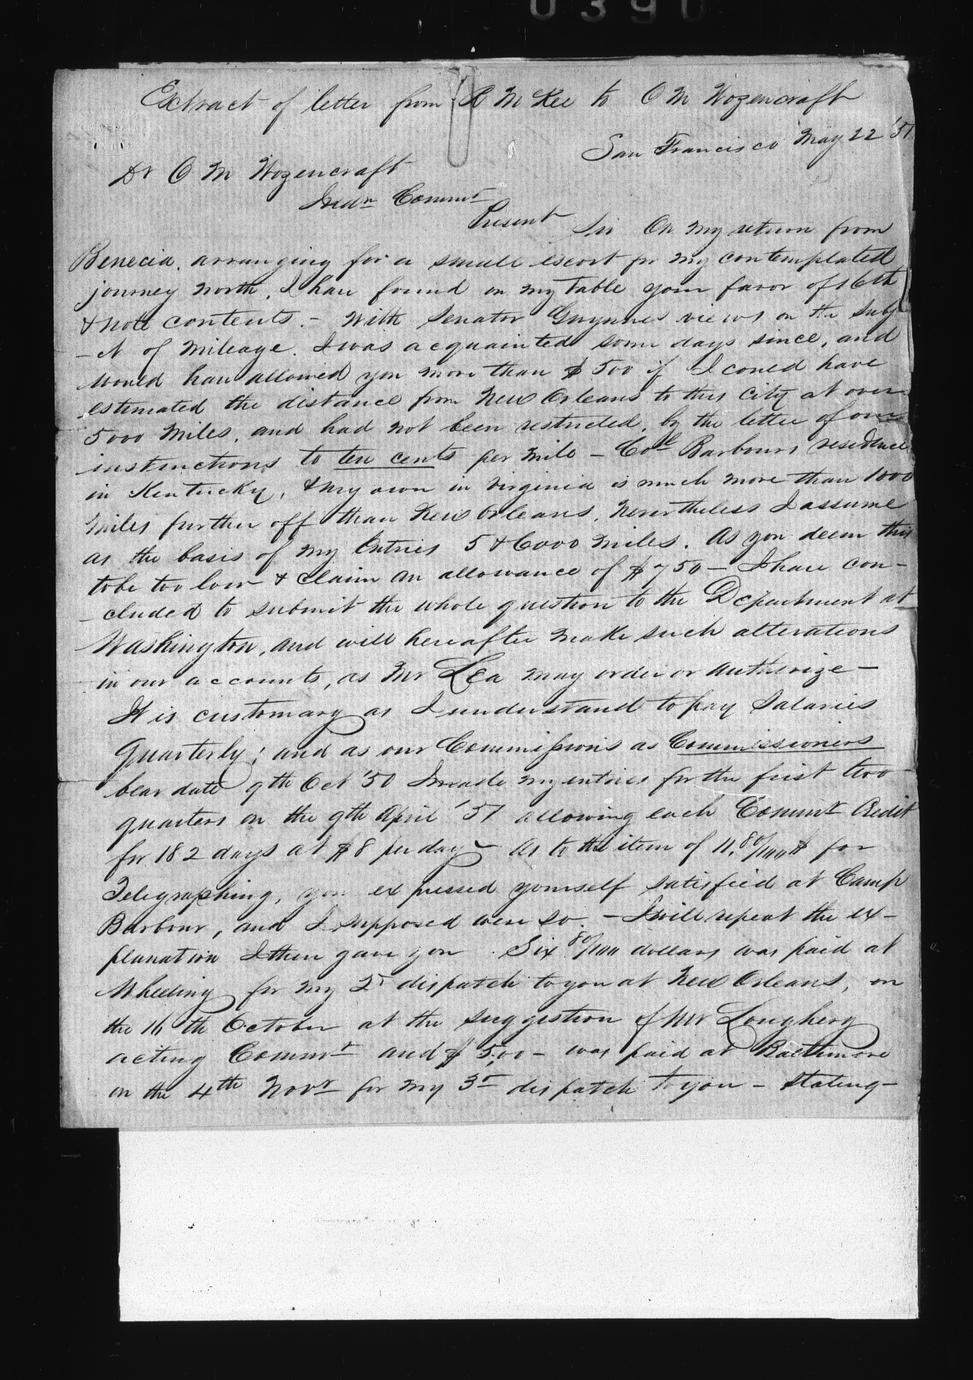 0390
Extract of letter from R McKee to O M Wozencraft
San Francisco May 22 '51
Dr O M Wozencraft
Indn Commr
Present Sir On my return from
Benecia, arranging for a small escort for my contemplated
journey north, I have found on my table your favor of 16th
& note contents. - With Senator Gwynnes views on the subj
-ct of mileage. I was acquainted some days since, and
would have allowed you more than $500 if I could have
estimated the distance from New Orleans to this City at over
5000 miles, and had not been restricted, by the letter of our
instructions to ten cents per mile - Col Barbours residence
in Kentucky, & my own in Virginia is much more than 1000
miles further off than New Orleans, nevertheless I assume
as the basis of my entries 5 & 6000 miles. As you deem this
to be too low & claim an allowance of $750 - I have con-
cluded to submit the whole question to the Department at
Washington, and will hereafter make such alterations
in our accounts, as Mr Lea may order or authorize -
It is customary as I understand to pay Salaries
Quarterly; and as our Commissions as Commissioners
bear date 9th Oct '50 I made my entries for the first two
quarters on the 9th April '51 allowing each Commr Credit
for 182 days at $8 per day - As to the item of 11,80/100 $ for
Telegraphing, you expressed yourself satisfied at Camp
Barbour, and I supposed were so - I will repeat the ex-
planation I then gave you. Six 80/100 dollars was paid at
Wheeling for my 2d dispatch to you at New Orleans, on
the 16th October at the suggestion of Mr Loughery
acting Commr and $5,00 - was paid at Baltimore
on the 4th Novr for my 3d dispatch to you - stating -